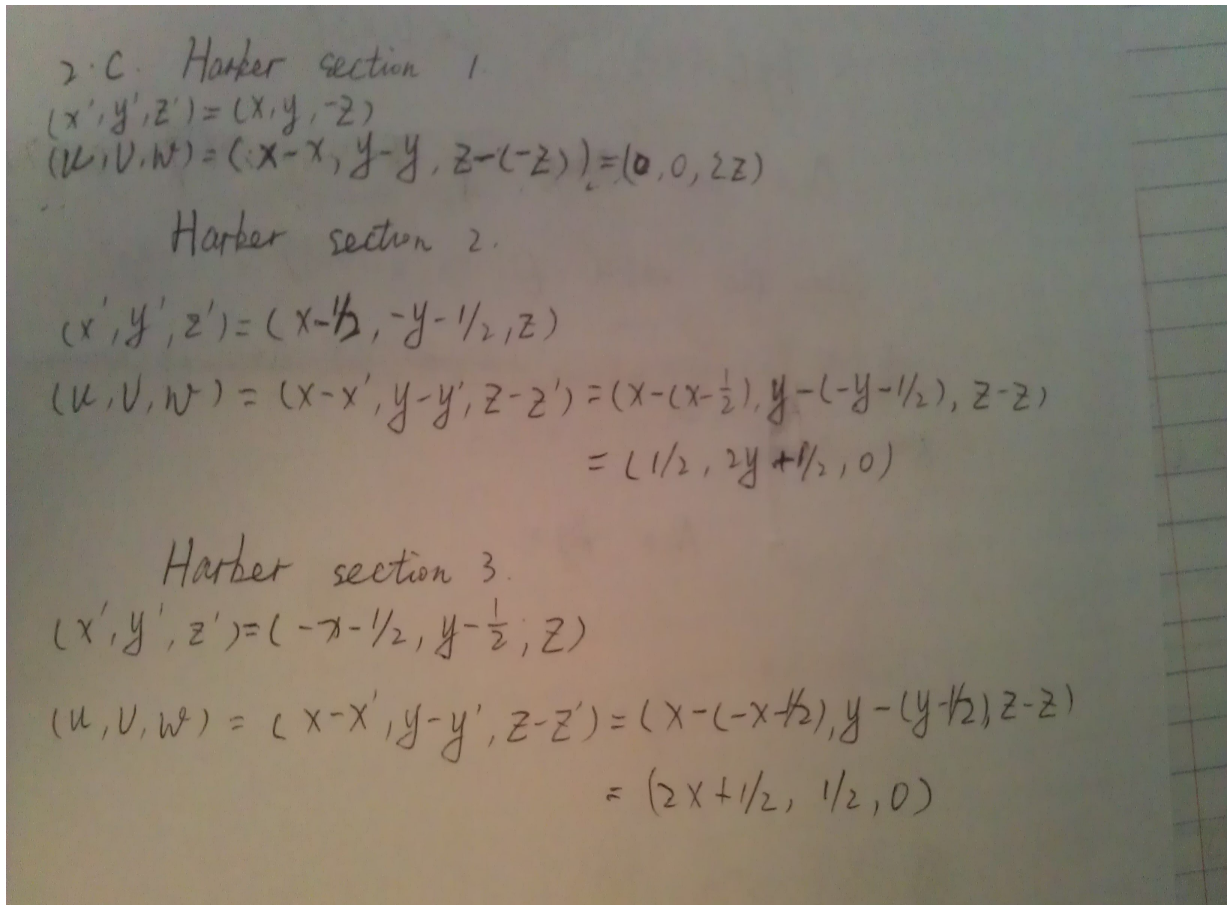 2.C. Harker section 1.
(x', y', z') = (x, y, -z)
(u, v, w) = (x-x, y-y, z-(-z)) = (0, 0, 2z)
Harker section 2.
(x', y', z') = (x-1/2, -y-1/2, z)
(u, v, w) = (x-x', y-y', z-z') = (x-(x-1/2), y-(-y-1/2), z-z)
= (1/2, 2y+1/2, 0)
Harker section 3.
(x', y', z') = (-x-1/2, y-1/2, z)
(u, v, w) = (x-x', y-y', z-z') = (x-(-x-1/2), y-(y-1/2), z-z)
= (2x+1/2, 1/2, 0)